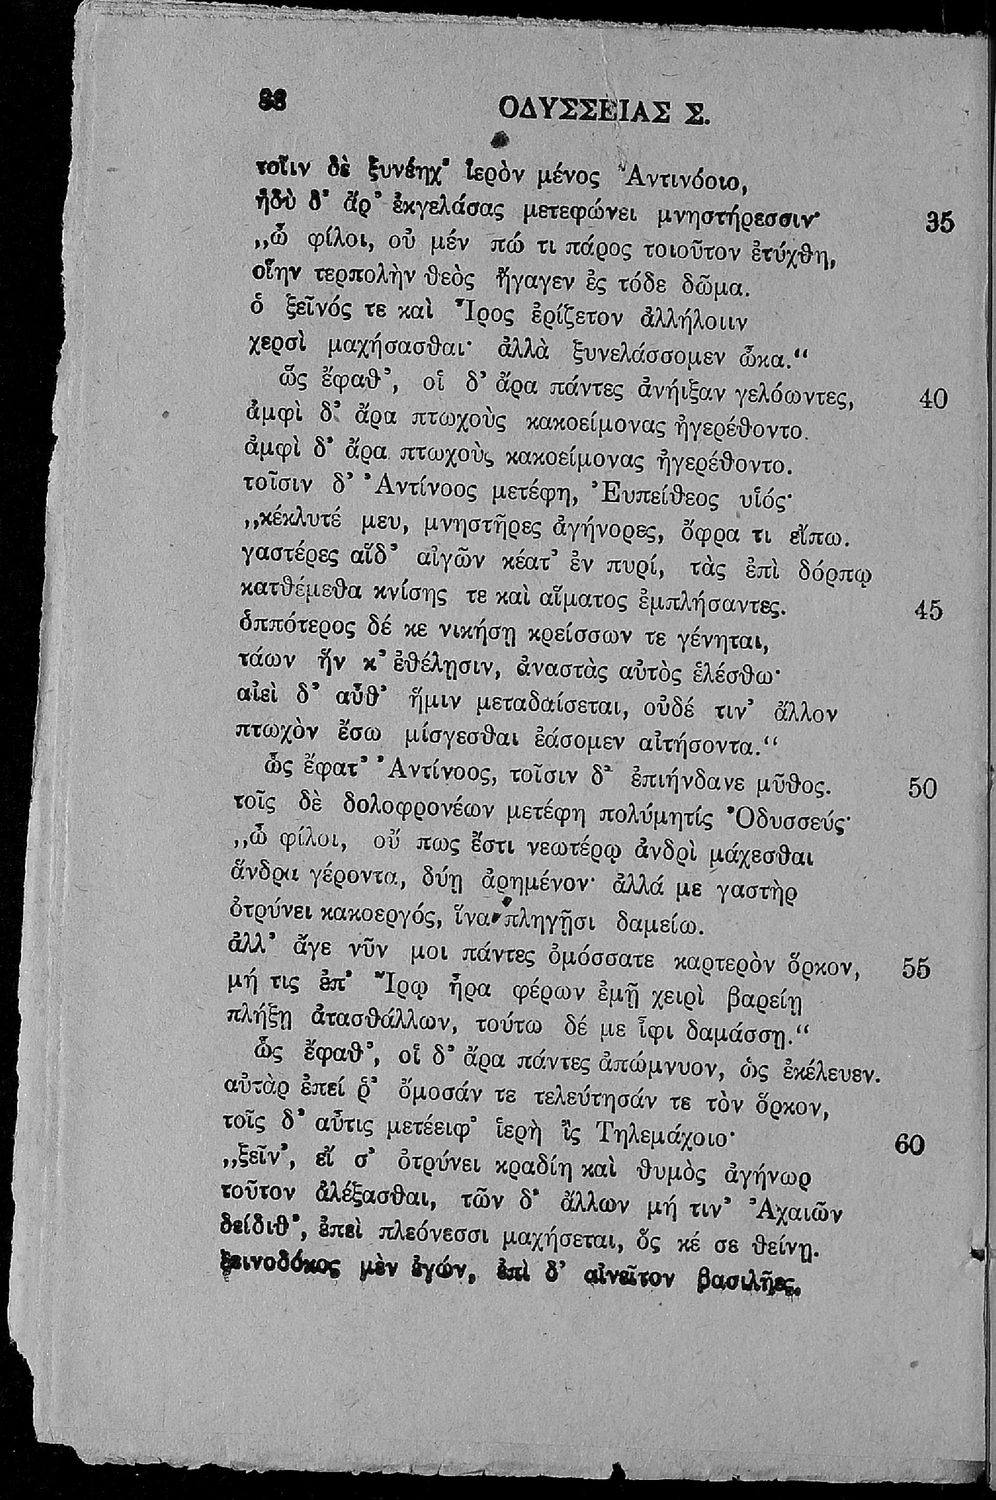 88
ΟΔΥΣΣΕΙΑΣ Σ.
τοῖιν δὲ ξυνέηχ' ἱερὸν μένος Ἀντινόοιο,
ἡδὺ δ' ἄρ' ἐκγελάσας μετεφώνει μνηστήρεσσιν· 35
„ὦ φίλοι, οὐ μέν πώ τι πάρος τοιοῦτον ἐτύχθη,
οἵην τερπολὴν θεὸς ἤγαγεν ἐς τόδε δῶμα.
ὁ ξεῖνός τε καὶ Ἶρος ἐρίζετον ἀλλήλοιιν
χερσὶ μαχήσασθαι· ἀλλὰ ξυνελάσσομεν ὦκα."
ὣς ἔφαθ', οἱ δ' ἄρα πάντες ἀνήιξαν γελόωντες, 40
ἀμφὶ δ' ἄρα πτωχοὺς κακοείμονας ἠγερέθοντο.
ἀμφὶ δ' ἄρα πτωχοὺς κακοείμονας ἠγερέθοντο.
τοῖσιν δ' Ἀντίνοος μετέφη, Ἐυπείθεος υἱός·
„κέκλυτέ μευ, μνηστῆρες ἀγήνορες, ὄφρα τι εἴπω.
γαστέρες αἵδ' αἰγῶν κέατ' ἐν πυρί, τὰς ἐπὶ δόρπῳ
κατθέμεθα κνίσης τε καὶ αἵματος ἐμπλήσαντες. 45
ὁππότερος δέ κε νικήσῃ κρείσσων τε γένηται,
τάων ἥν κ' ἐθέλῃσιν, ἀναστὰς αὐτὸς ἑλέσθω·
αἰεὶ δ' αὖθ' ἥμιν μεταδαίσεται, οὐδέ τιν' ἄλλον
πτωχὸν ἔσω μίσγεσθαι ἐάσομεν αἰτήσοντα."
ὣς ἔφατ' Ἀντίνοος, τοῖσιν δ' ἐπιήνδανε μῦθος. 50
τοῖς δὲ δολοφρονέων μετέφη πολύμητίς Ὀδυσσεύς·
„ὦ φίλοι, οὔ πως ἔστι νεωτέρῳ ἀνδρὶ μάχεσθαι
ἄνδρα γέροντα, δύῃ ἀρημένον· ἀλλά με γαστὴρ
ὀτρύνει κακοεργός, ἵνα πληγῇσι δαμείω.
ἀλλ' ἄγε νῦν μοι πάντες ὀμόσσατε καρτερὸν ὅρκον, 55
μή τις ἐπ' Ἴρῳ ἦρα φέρων ἐμῇ χειρὶ βαρείῃ
πλήξῃ ἀτασθάλλων, τούτω δέ με ἶφι δαμάσσῃ."
ὣς ἔφαθ', οἱ δ' ἄρα πάντες ἀπώμνυον, ὡς ἐκέλευεν.
αὐτὰρ ἐπεί ῥ' ὄμοσάν τε τελεύτησάν τε τὸν ὅρκον,
τοῖς δ' αὖτις μετέειφ' ἱερὴ ἲς Τηλεμάχοιο· 60
„ξεῖν', εἴ σ' ὀτρύνει κραδίη καὶ θυμὸς ἀγήνωρ
τοῦτον ἀλέξασθαι, τῶν δ' ἄλλων μή τιν' Ἀχαιῶν
δείδιθ', ἐπεὶ πλεόνεσσι μαχήσεται, ὅς κέ σε θείνῃ.
ξεινοδόκος μὲν ἐγών, ἐπὶ δ' αἰνεῖτον βασιλῆες,